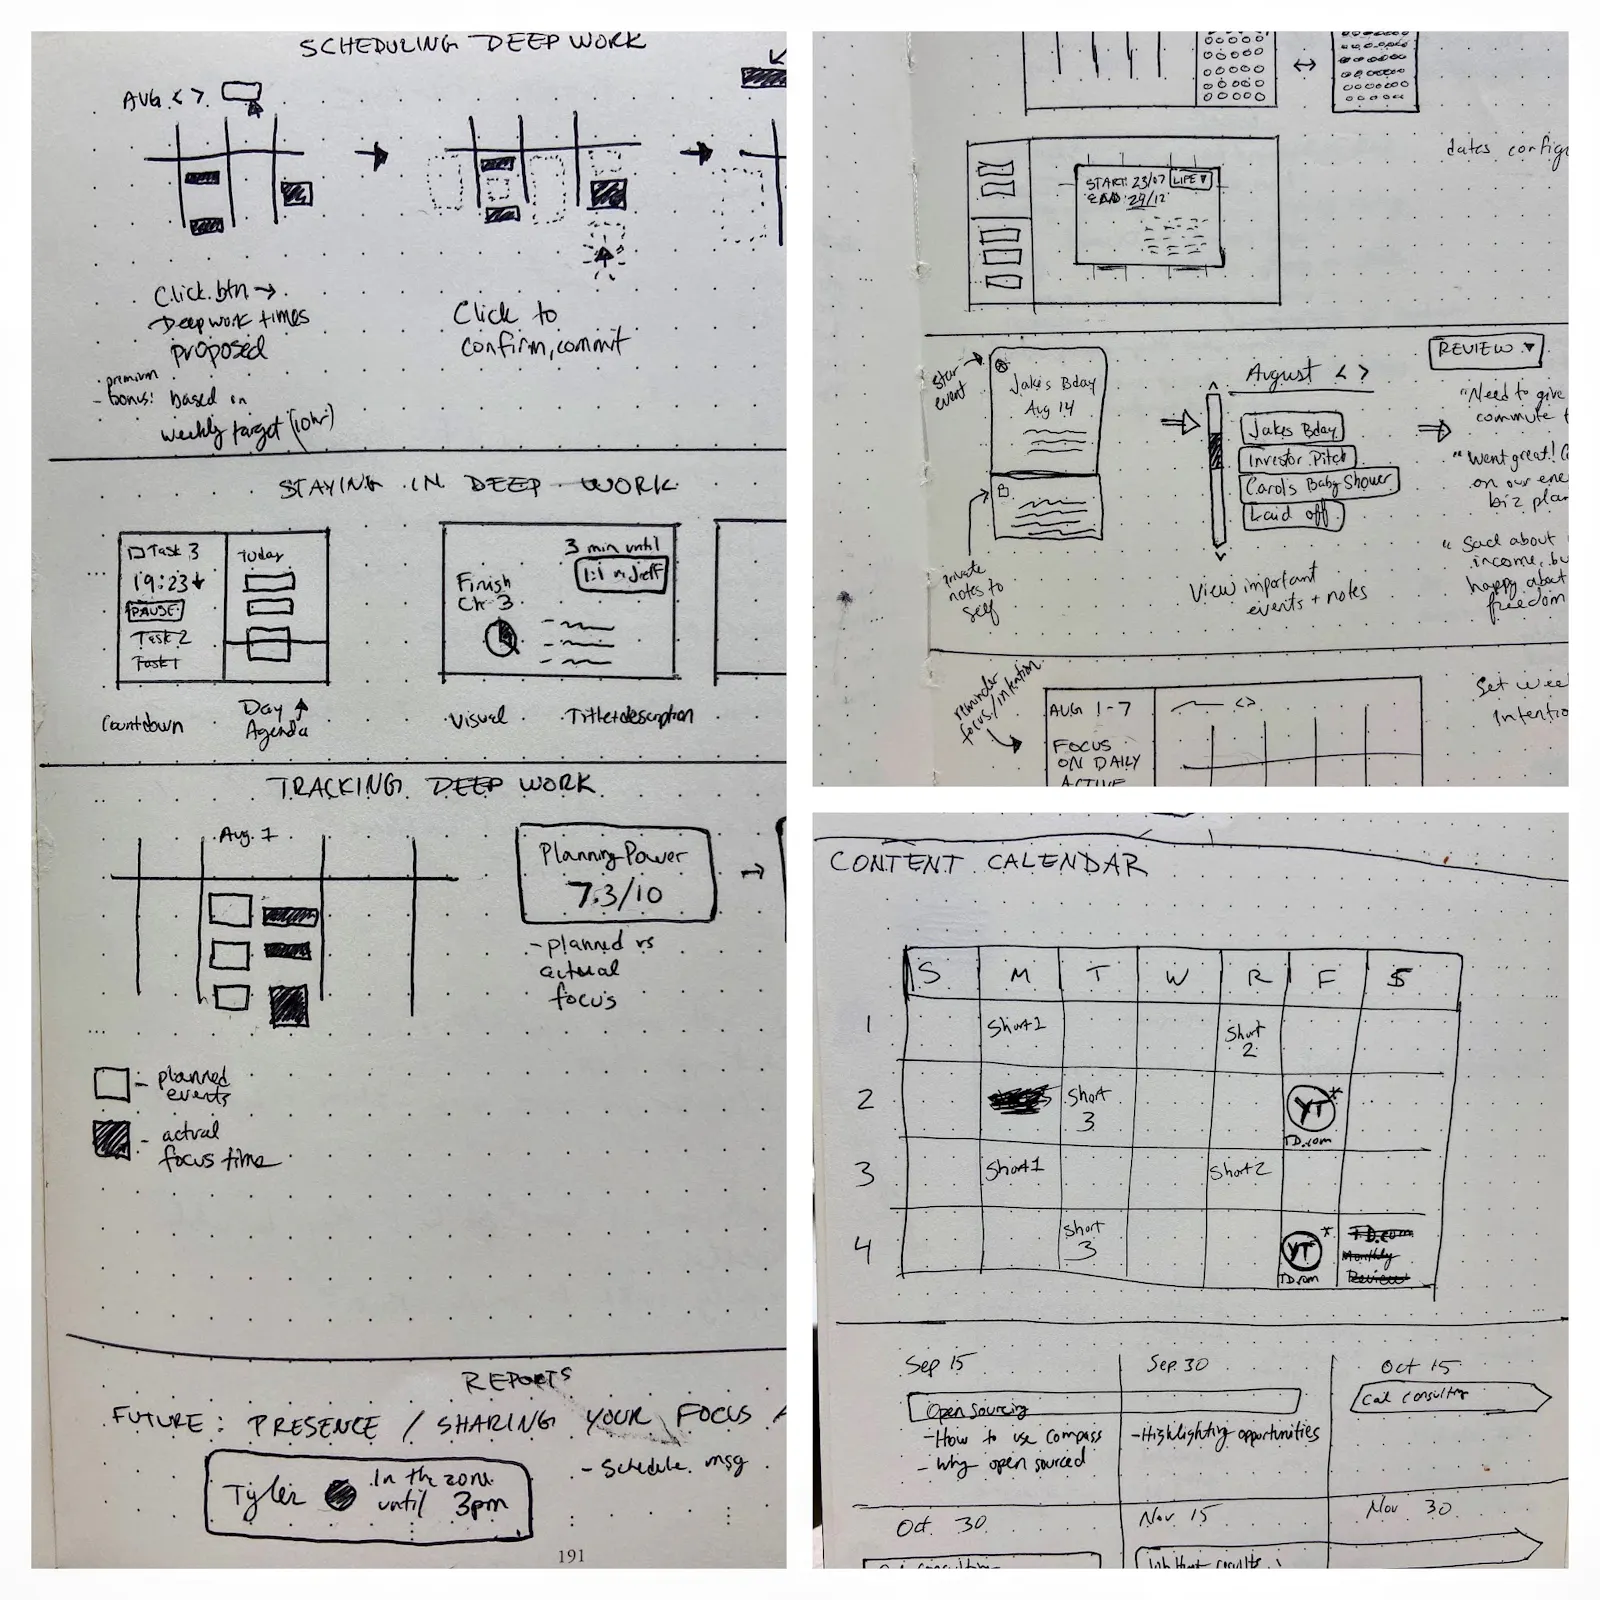 SCHEDULING DEEP WORK
AUG. < >
Click btn →
Deep work times
proposed
- premium
- bonus! based on
weekly target (10hr)
Click to
confirm, commit
STAYING IN DEEP WORK
Task 3
19:23
PAUSE
Task 2
Task 1
Today
Countdown
Day
Agenda
Finish
Ch. 3
3 min until
1:1 w Jeff
Visual
Title + description
TRACKING DEEP WORK
Aug. 1
Planning Power
7.3/10
- planned vs
actual
focus
- planned
events
- actual
focus time
REPORTS
FUTURE: PRESENCE / SHARING YOUR FOCUS
Tyler
In the zone
until 3pm
- Schedule msg
191
dates config
START: 23/07
LIFE ▼
END: 29/12
star
event
Jake's Bday
Aug 14
private
notes to
self
August < >
Jakes Bday
Investor Pitch
Carol's Baby Shower
Laid off
View important
events + notes
REVIEW ▼
"Need to give
commute t
"Went great!
on our ene
biz plan
" Sad about
income, bu
happy about
freedom
reminder
focus/intention
AUG 1-7
FOCUS
ON DAILY
ACTIVE
< >
Set wee
Intentio
CONTENT CALENDAR
S M T W R F S
1
Short 1
Short
2
2
Short
3
YT*
TD.com
3
Short 1
Short 2
4
Short
3
YT*
TD.com
TD.com
Monthly
Review
Sep 15
Open sourcing
- How to use Compass
- Why open sourced
Sep. 30
- Highlighting opportunities
Oct 15
Cal consulting
Oct. 30
Nov 15
Nov 30